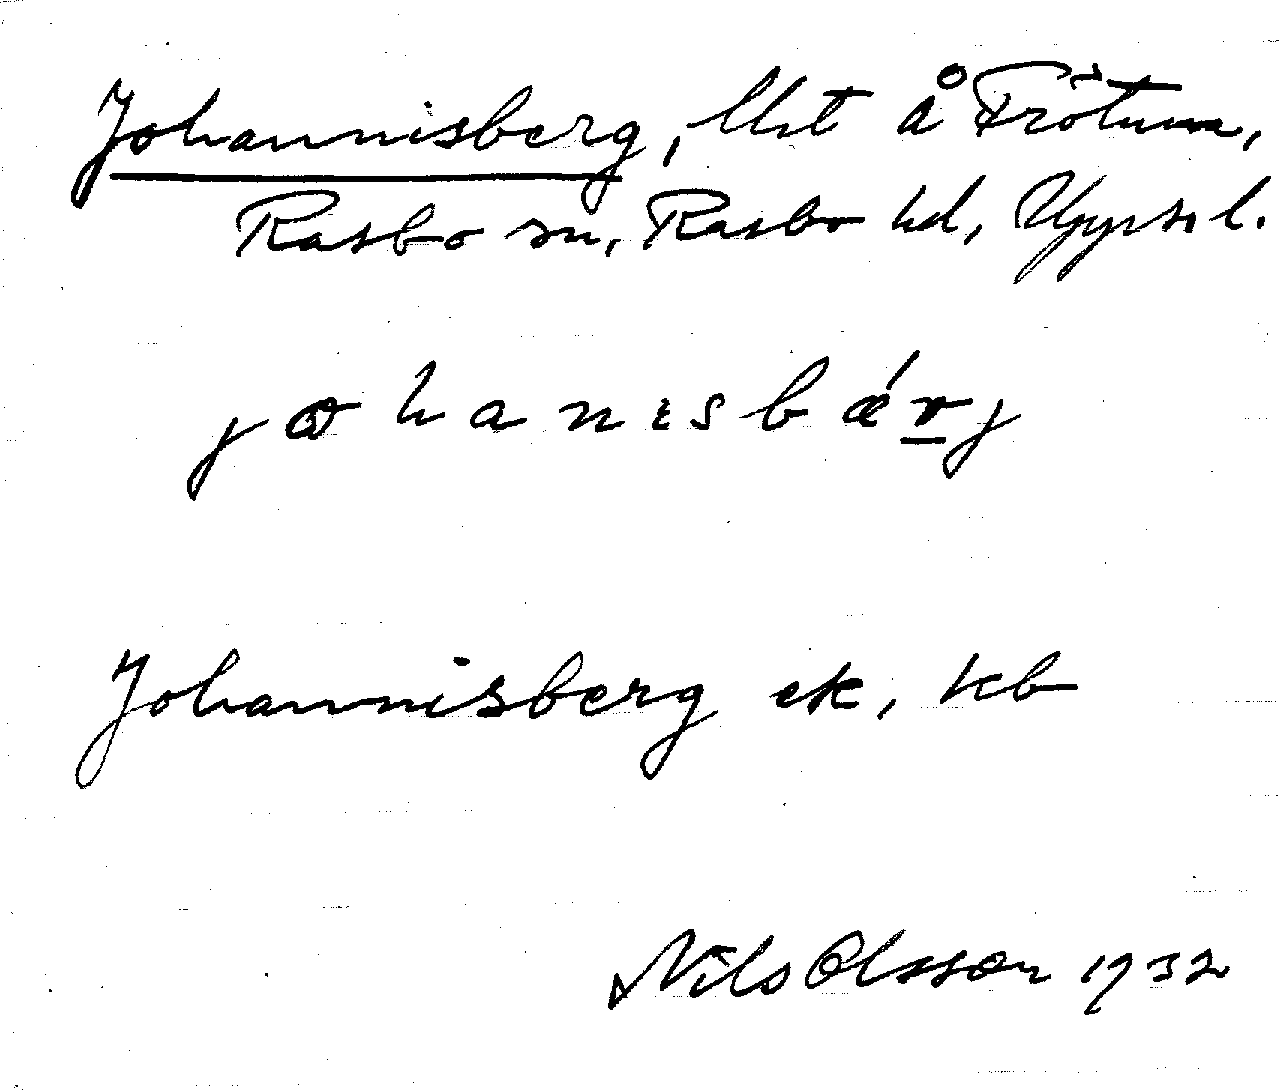 Johannisberg, lht å Frötuna,
Rasbo sn, Rasbo hd, Upps. l.
johanısbǽrj
Johannisberg ek, kb
Nils Olsson 1932